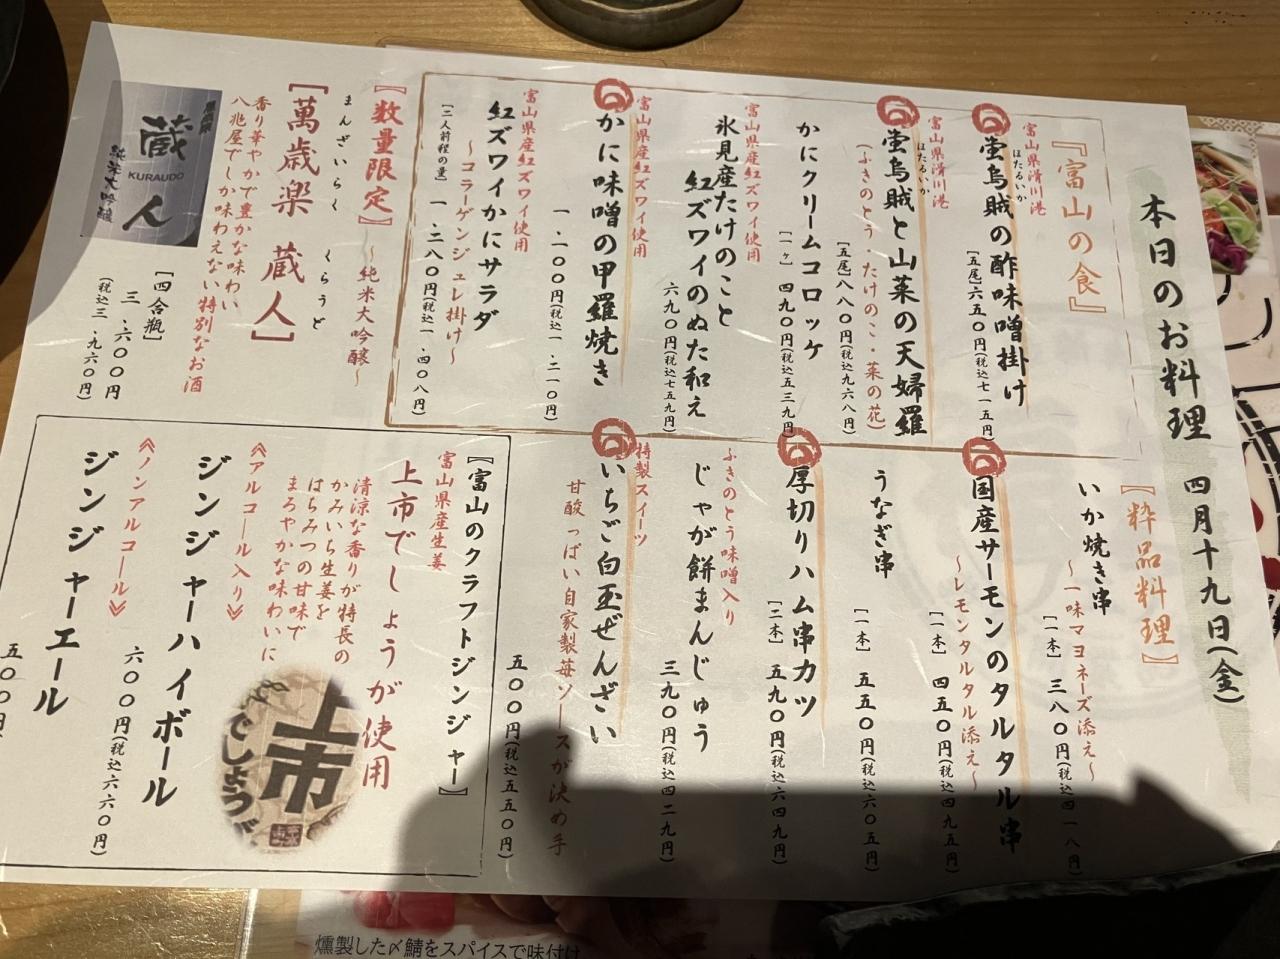 本日のお料理 四月十九日(金)
『富山の食』
富山県滑川港
ほたるいか
蛍烏賊の酢味噌掛け
[五尾]六五〇円(税込七一五円)
富山県滑川港
ほたるいか
蛍烏賊と山菜の天婦羅
(ふきのとう・たけのこ・菜の花)
[五尾]八八〇円(税込九六八円)
かにクリームコロッケ
[一ヶ] 四九〇円(税込五三九円)
富山県産紅ズワイ使用
氷見産たけのこと
紅ズワイのぬた和え
六九〇円(税込七五九円)
富山県産紅ズワイ使用
かに味噌の甲羅焼き
一、一〇〇円(税込一、二一〇円)
富山県産紅ズワイ使用
紅ズワイかにサラダ
〜コラーゲンジュレ掛け〜
[二人前程の量] 一、二八〇円(税込一、四〇八円)
【数量限定】〜純米大吟醸〜
まんざいらく くらうど
[萬歳楽 蔵人]
香り華やかで豊かな味わい
八兆屋でしか味わえない特別なお酒
蔵人
KURAUDO
純米大吟醸
[四合瓶]
三、六〇〇円
(税込三、九六〇円)
【粋品料理】
いか焼き串
〜一味マヨネーズ添え〜
[一本] 三八〇円(税込四一八円)
国産サーモンのタルタル串
〜レモンタルタル添え〜
[一本] 四五〇円(税込四九五円)
うなぎ串
[一本] 五五〇円(税込六〇五円)
厚切りハム串カツ
[二本] 五九〇円(税込六四九円)
ふきのとう味噌入り
じゃが餅まんじゅう
三九〇円(税込四二九円)
特製スイーツ
いちご白玉ぜんざい
甘酸っぱい自家製苺ソースが決め手
五〇〇円(税込五五〇円)
【富山のクラフトジンジャー】
富山県産生姜
上市でしょうが使用
清涼な香りが特長の
かみいち生姜を
はちみつの甘味で
まろやかな味わいに
上市
でしょうが
《アルコール入り》
ジンジャーハイボール
六〇〇円(税込六六〇円)
《ノンアルコール》
ジンジャーエール
五〇〇円
燻製した〆鯖をスパイスで味付け